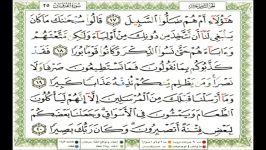 سُورَةُ الْفُرْقَانِ ٢٥
هَٰٓؤُلَآءِ أَمْ هُمْ ضَلُّوا۟ ٱلسَّبِيلَ ١٧ قَالُوا۟ سُبْحَٰنَكَ مَا كَانَ
يَنۢبَغِى لَنَآ أَن نَّتَّخِذَ مِن دُونِكَ مِنْ أَوْلِيَآءَ وَلَٰكِن مَّتَّعْتَهُمْ
وَءَابَآءَهُمْ حَتَّىٰ نَسُوا۟ ٱلذِّكْرَ وَكَانُوا۟ قَوْمًۢا بُورًا ١٨ فَقَدْ
كَذَّبُوكُم بِمَا تَقُولُونَ فَمَا تَسْتَطِيعُونَ صَرْفًا وَلَا
نَصْرًا وَمَن يَظْلِم مِّنكُمْ نُذِقْهُ عَذَابًا كَبِيرًا ١٩
وَمَآ أَرْسَلْنَا قَبْلَكَ مِنَ ٱلْمُرْسَلِينَ إِلَّآ إِنَّهُمْ لَيَأْكُلُونَ
ٱلطَّعَامَ وَيَمْشُونَ فِى ٱلْأَسْوَاقِ وَجَعَلْنَا بَعْضَكُمْ
لِبَعْضٍ فِتْنَةً أَتَصْبِرُونَ وَكَانَ رَبُّكَ بَصِيرًا ٢٠